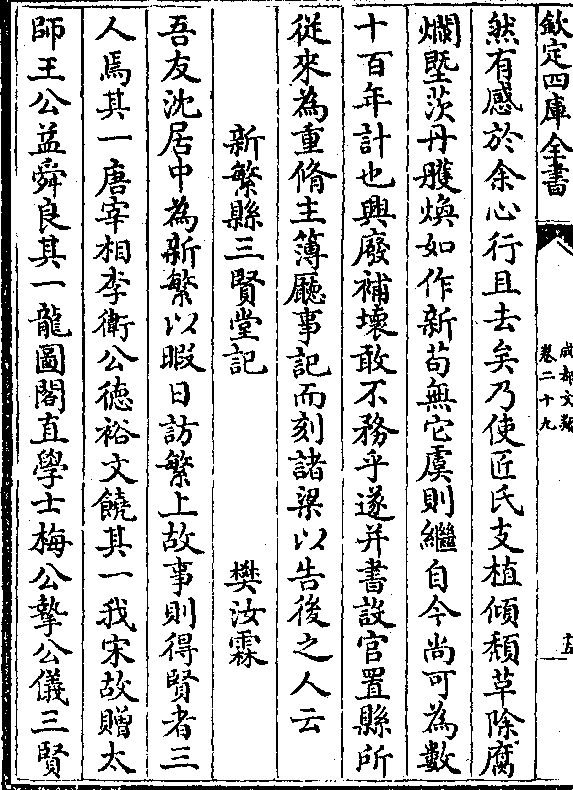 欽定四庫全書
成都文類
卷二十九
十五
然有感於余心行且去矣乃使匠氏支植傾頹草除腐
爛墍茨丹雘煥如作新茍無它虞則繼自今尚可為數
十百年計也興廢補壞敢不務乎遂并書設官置縣所
從來為重脩主簿廳事記而刻諸梁以告後之人云
新繁縣三賢堂記 樊汝霖
吾友沈居中為新繁以暇日訪繁上故事則得賢者三
人焉其一唐宰相李衛公德裕文饒其一我宋故贈太
師王公益舜良其一龍圖閣直學士梅公摯公儀三賢